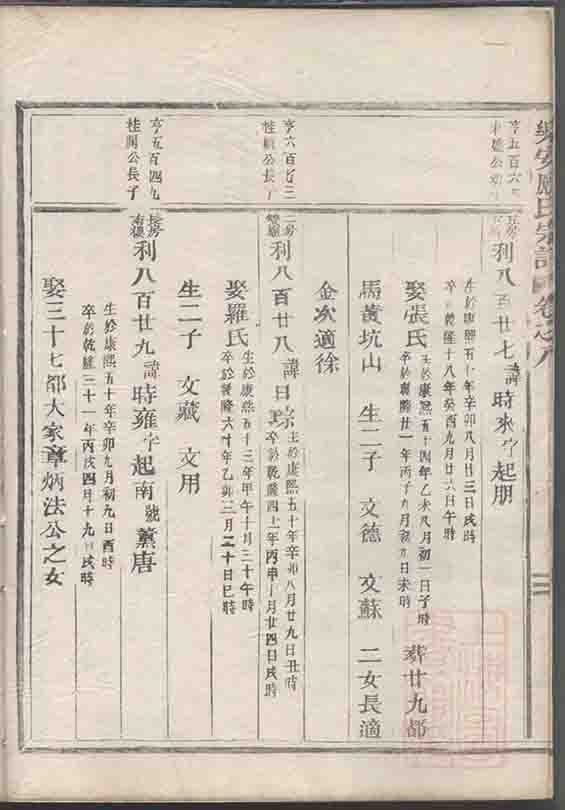 安應氏宗譜 卷之八
亨五百六
利八百廿七 諱時來字起朋
生於康熙五十年辛卯八月廿三日戌時
卒於乾隆十八年癸酉九月廿六日午時
娶張氏 生於康熙五十四年乙未八月初一日子時 卒於乾隆廿一年丙子九月初九日未時 葬廿九都
馬黃坑山 生二子 文德 文蘇 二女長適
金次適徐
亨六百七三
桂 公長子
二房
利八百廿八 諱日琮 生於康熙五十年辛卯八月廿九日丑時
卒於乾隆四十一年丙申十月廿四日戌時
娶羅氏 生於康熙五十三年甲午十月三十午時
卒於乾隆六十年乙卯三月二十日巳時
生二子 文藏 文用
亨五百四九
桂閣公長子
長房
利八百廿九 諱時雍字起南號薰唐
生於康熙五十年辛卯九月初九日酉時
卒於乾隆三十一年丙戌四月十九日戌時
娶三十七都大家章炳法公之女